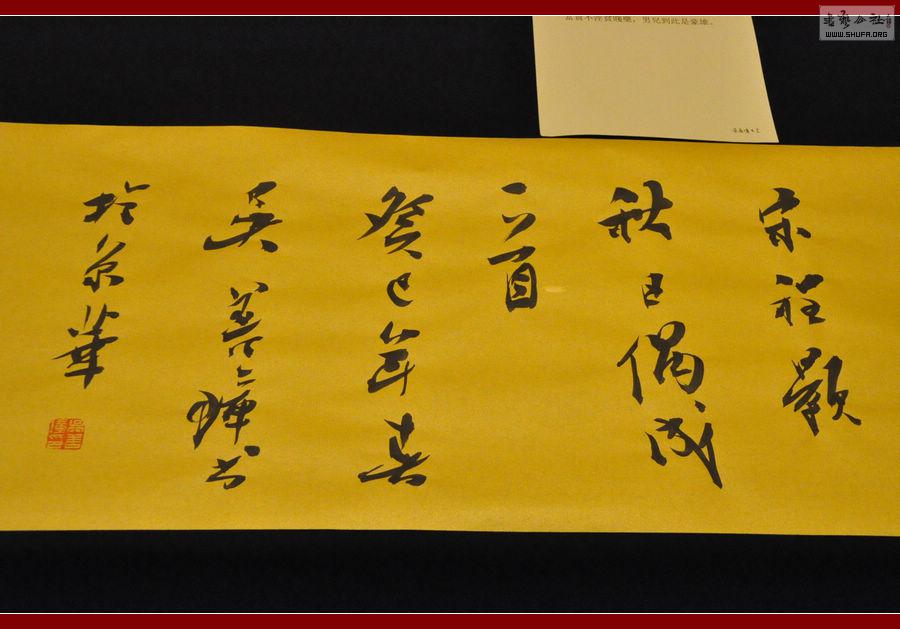 書藝公社
WWW.SHUFA.ORG
富貴不淫貧賤樂，男兒到此是豪雄。
宋程顥
秋日偶成
一首
癸巳年春
吴善璋书
於京華